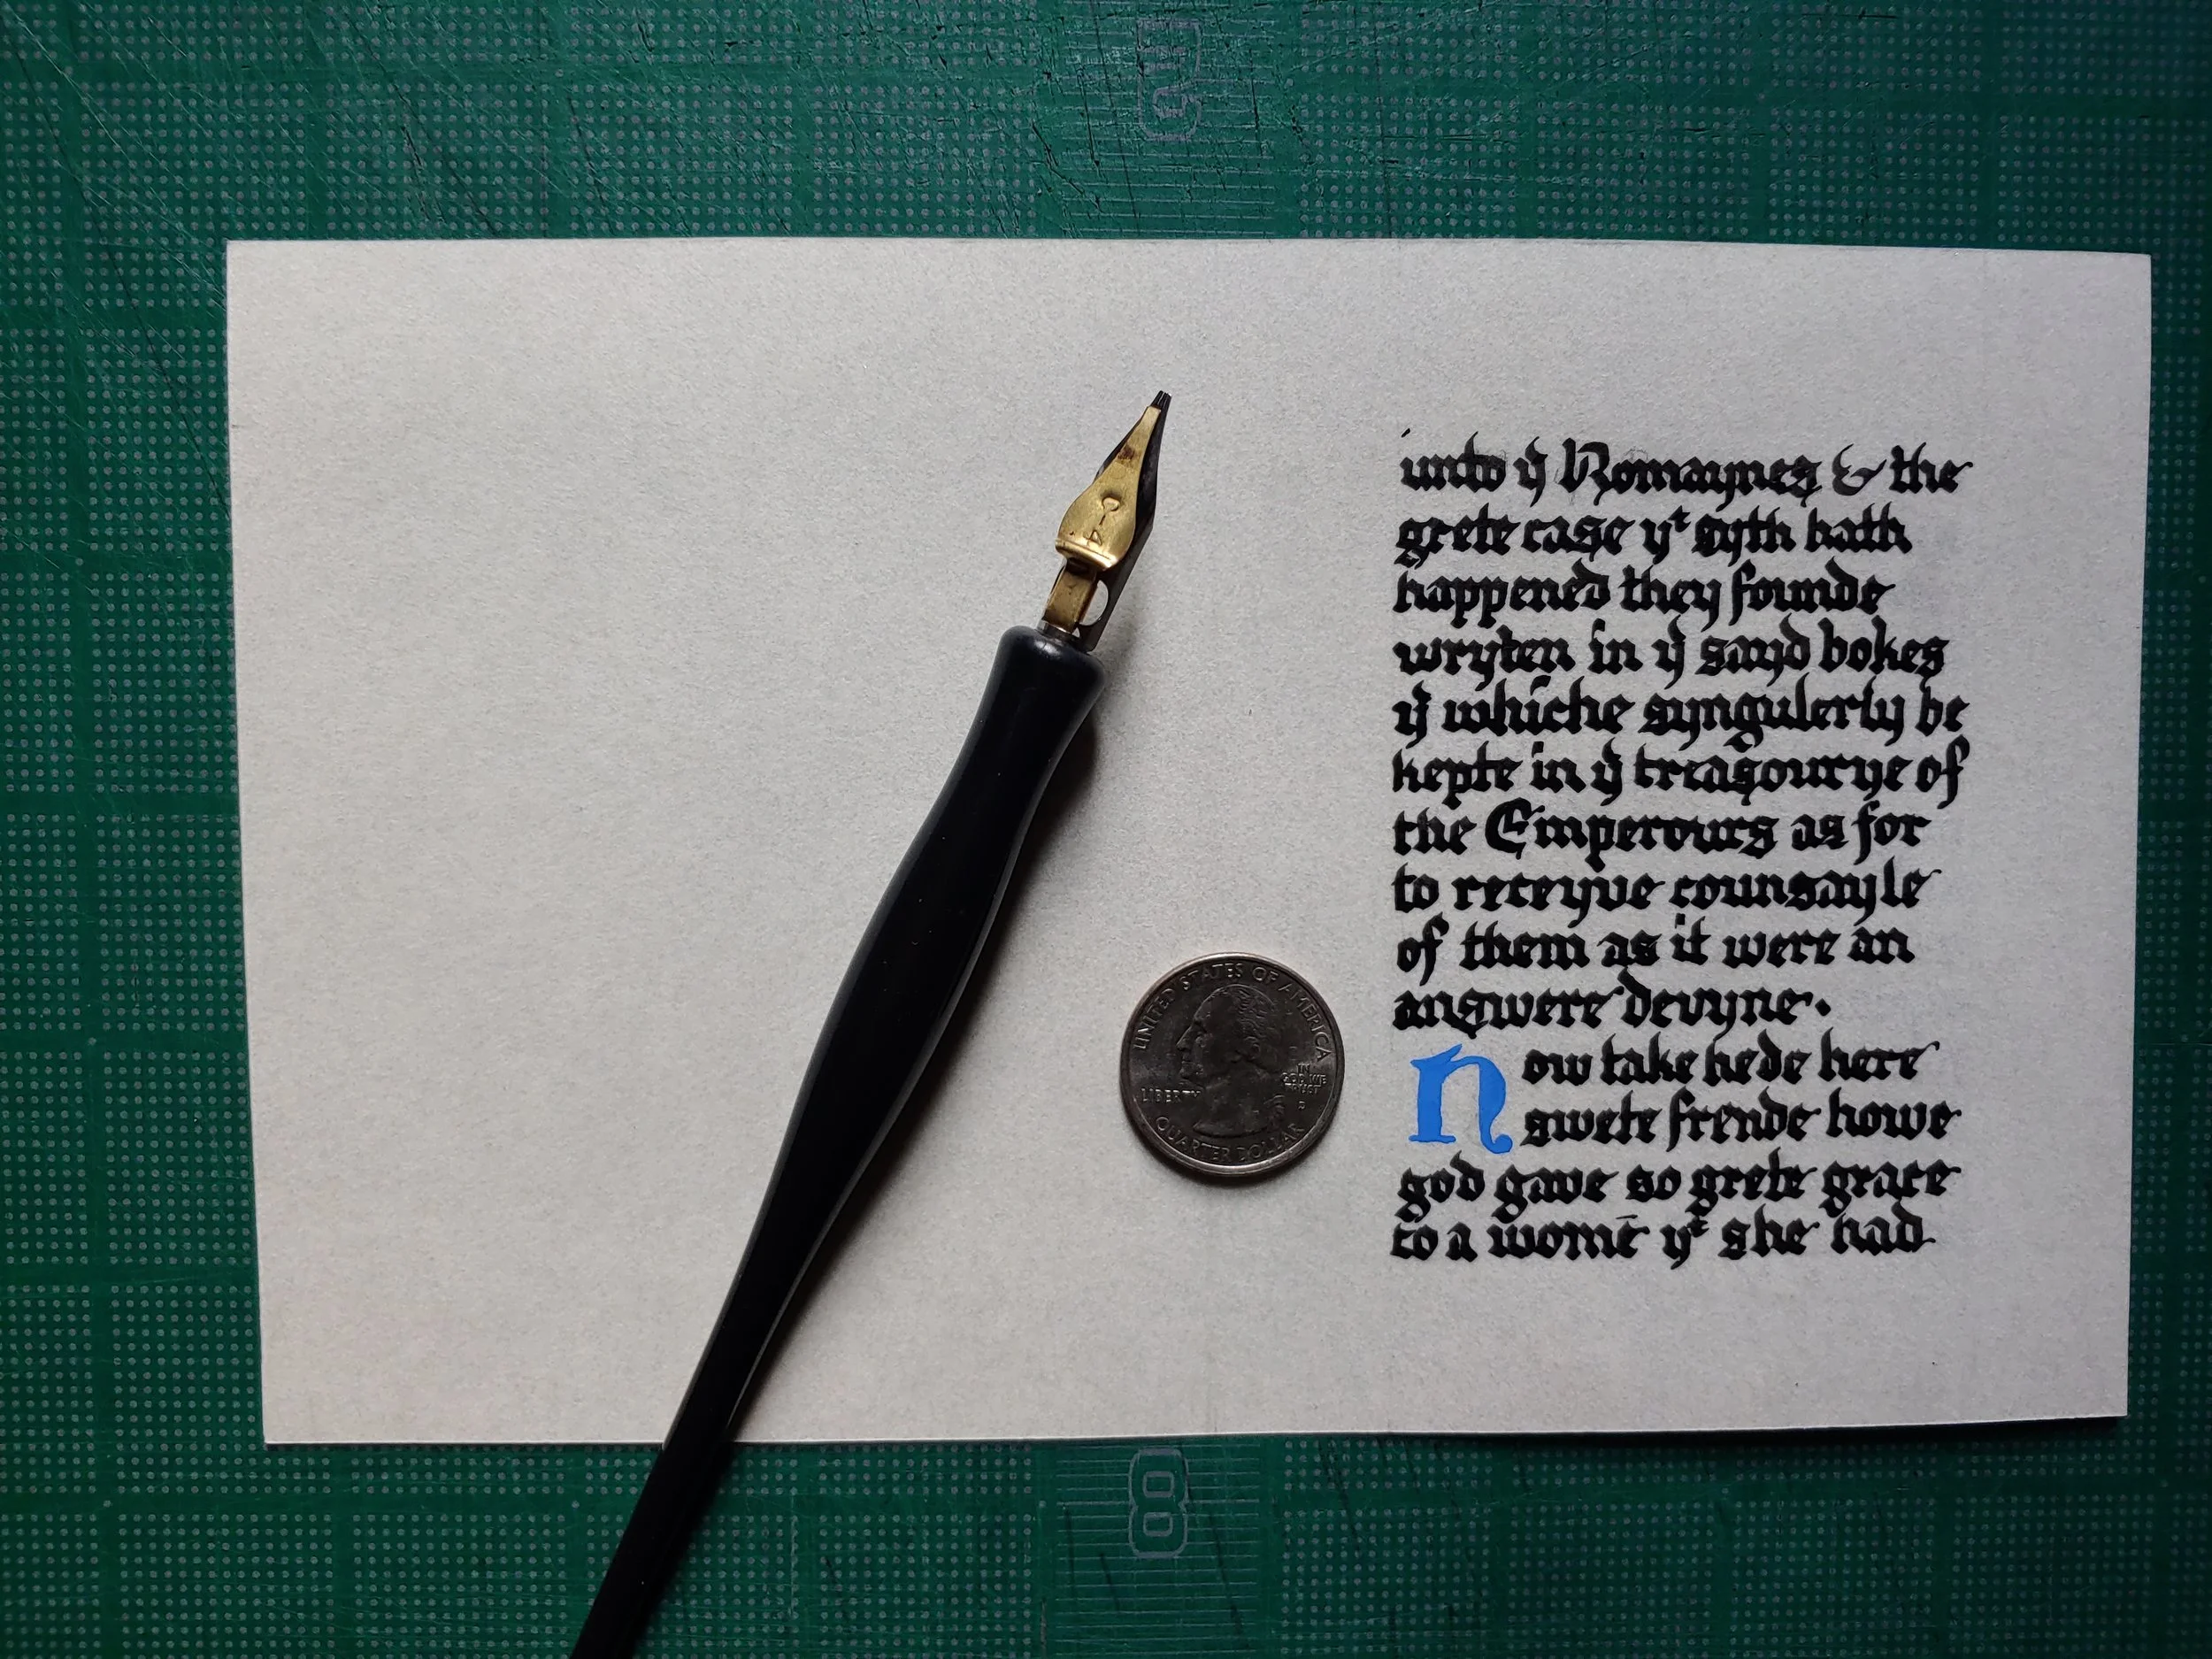 unto yͤ Romaynes & the
grete case yᵗ syth hath
happened they founde
wryten in yͤ sayd bokes
yͤ whiche syngulerly be
kepte in yͤ treasourye of
the Emperours as for
to receyve counsayle
of them as it were an
answere devyne.
Now take hede here
swete frende howe
god gave so grete grace
to a womē yᵗ she had
C-4
UNITED STATES OF AMERICA
LIBERTY
IN GOD WE TRUST
QUARTER DOLLAR
8